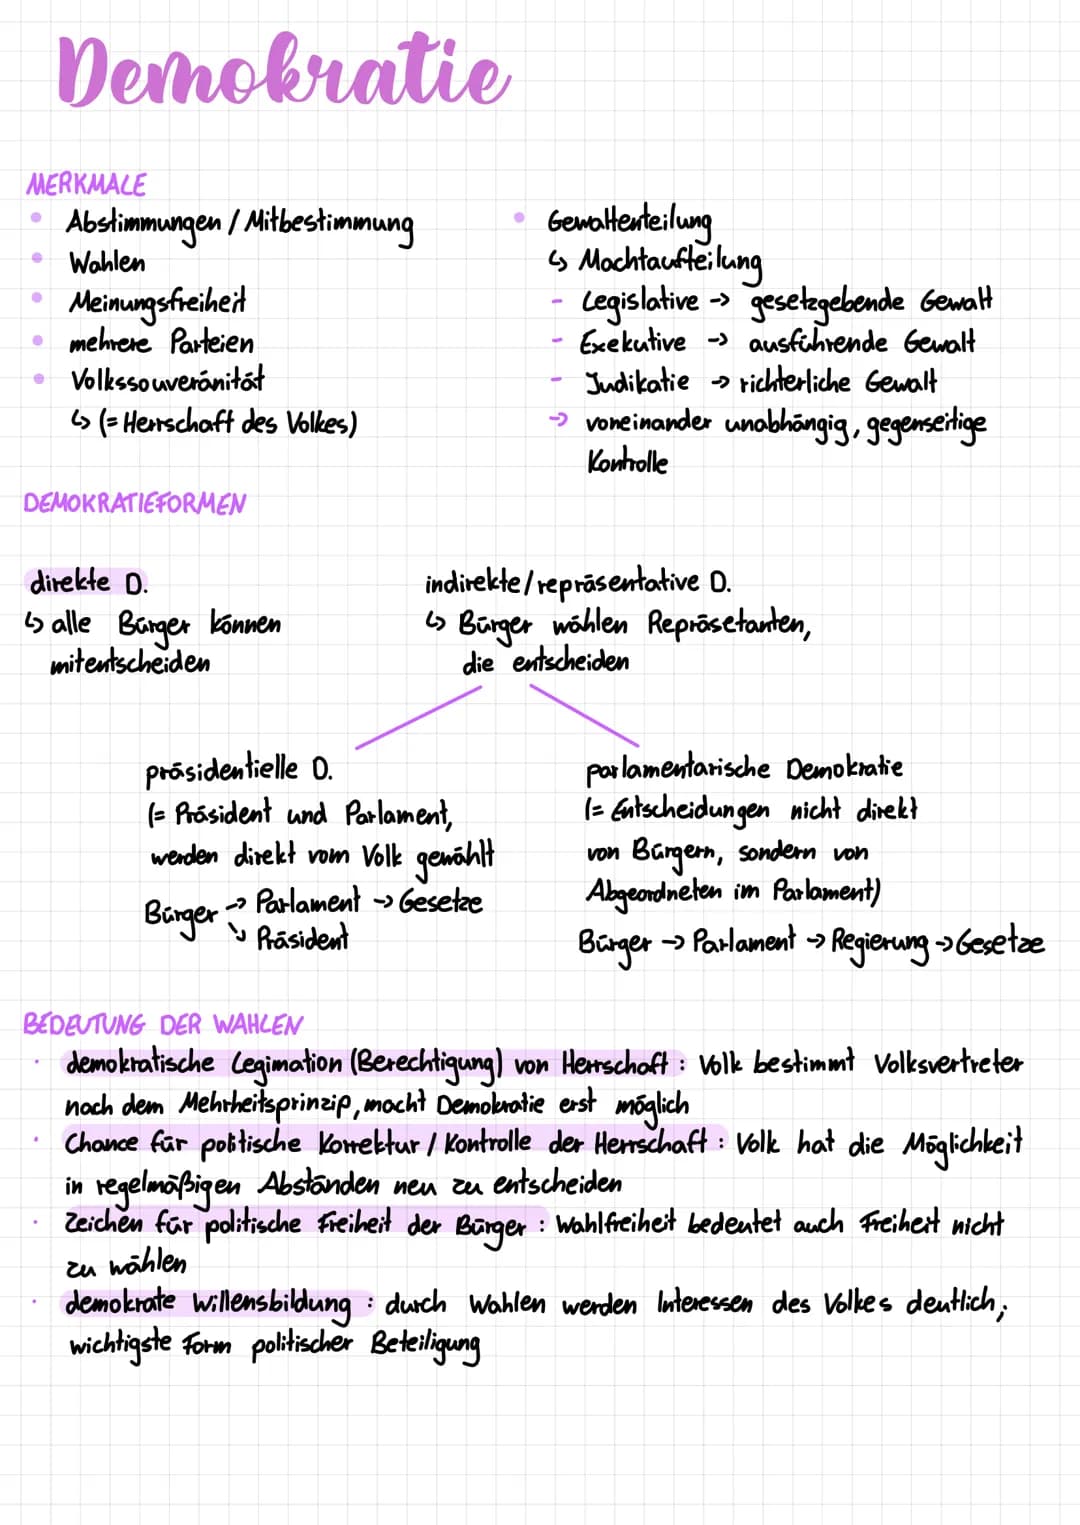 Demokratie
MERKMALE
• Abstimmungen / Mitbestimmung
• Wahlen
• Meinungsfreiheit
• mehrere Parteien
• Volkssouveränität
↳ (= Herrschaft des Volkes)
• Gewaltenteilung
↳ Machtaufteilung
- Legislative → gesetzgebende Gewalt
- Exekutive → ausführende Gewalt
- Judikatie → richterliche Gewalt
→ voneinander unabhängig, gegenseitige
Kontrolle
DEMOKRATIEFORMEN
direkte D.
↳ alle Bürger können
mitentscheiden
indirekte/repräsentative D.
↳ Bürger wählen Repräsetanten,
die entscheiden
präsidentielle D.
(= Präsident und Parlament,
werden direkt vom Volk gewählt
Bürger → Parlament → Gesetze
↘ Präsident
parlamentarische Demokratie
(= Entscheidungen nicht direkt
von Bürgern, sondern von
Abgeordneten im Parlament)
Bürger → Parlament → Regierung → Gesetze
BEDEUTUNG DER WAHLEN
· demokratische Legimation (Berechtigung) von Herrschaft : Volk bestimmt Volksvertreter
nach dem Mehrheitsprinzip, macht Demokratie erst möglich
· Chance für politische Korrektur / Kontrolle der Herrschaft : Volk hat die Möglichkeit
in regelmäßigen Abständen neu zu entscheiden
· Zeichen für politische Freiheit der Bürger : Wahlfreiheit bedeutet auch Freiheit nicht
zu wählen
· demokrate Willensbildung : durch Wahlen werden Interessen des Volkes deutlich,
wichtigste Form politischer Beteiligung